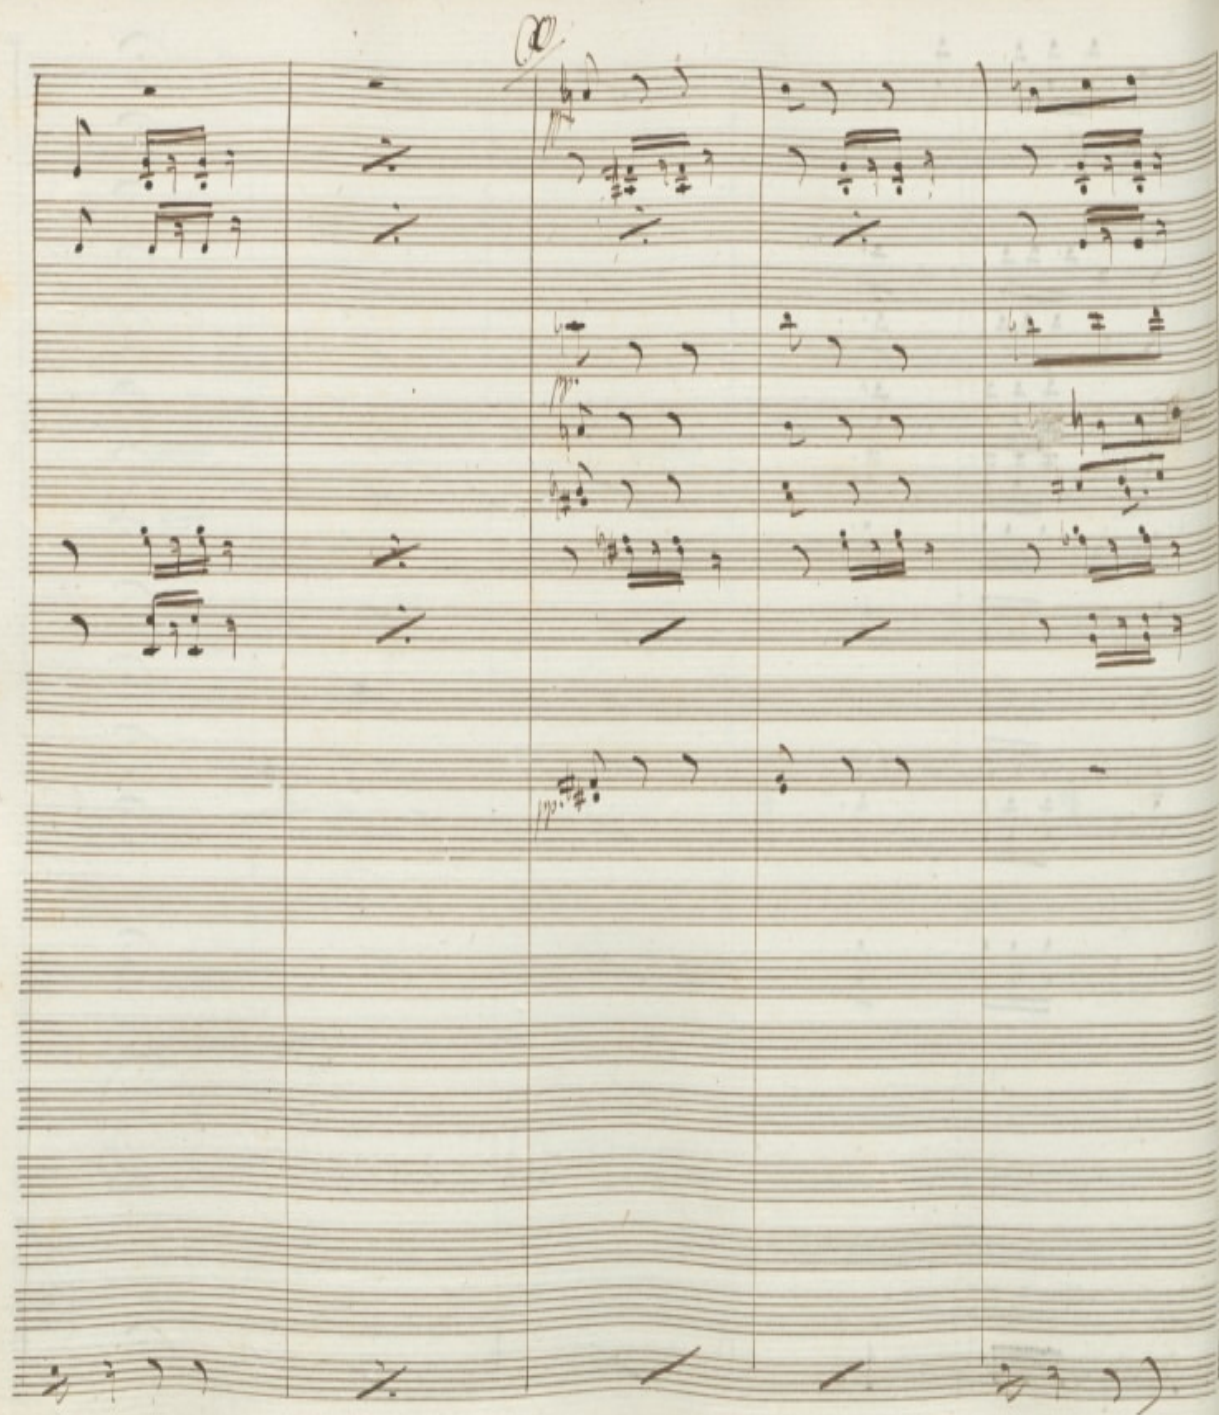 pp
pp.
pp.